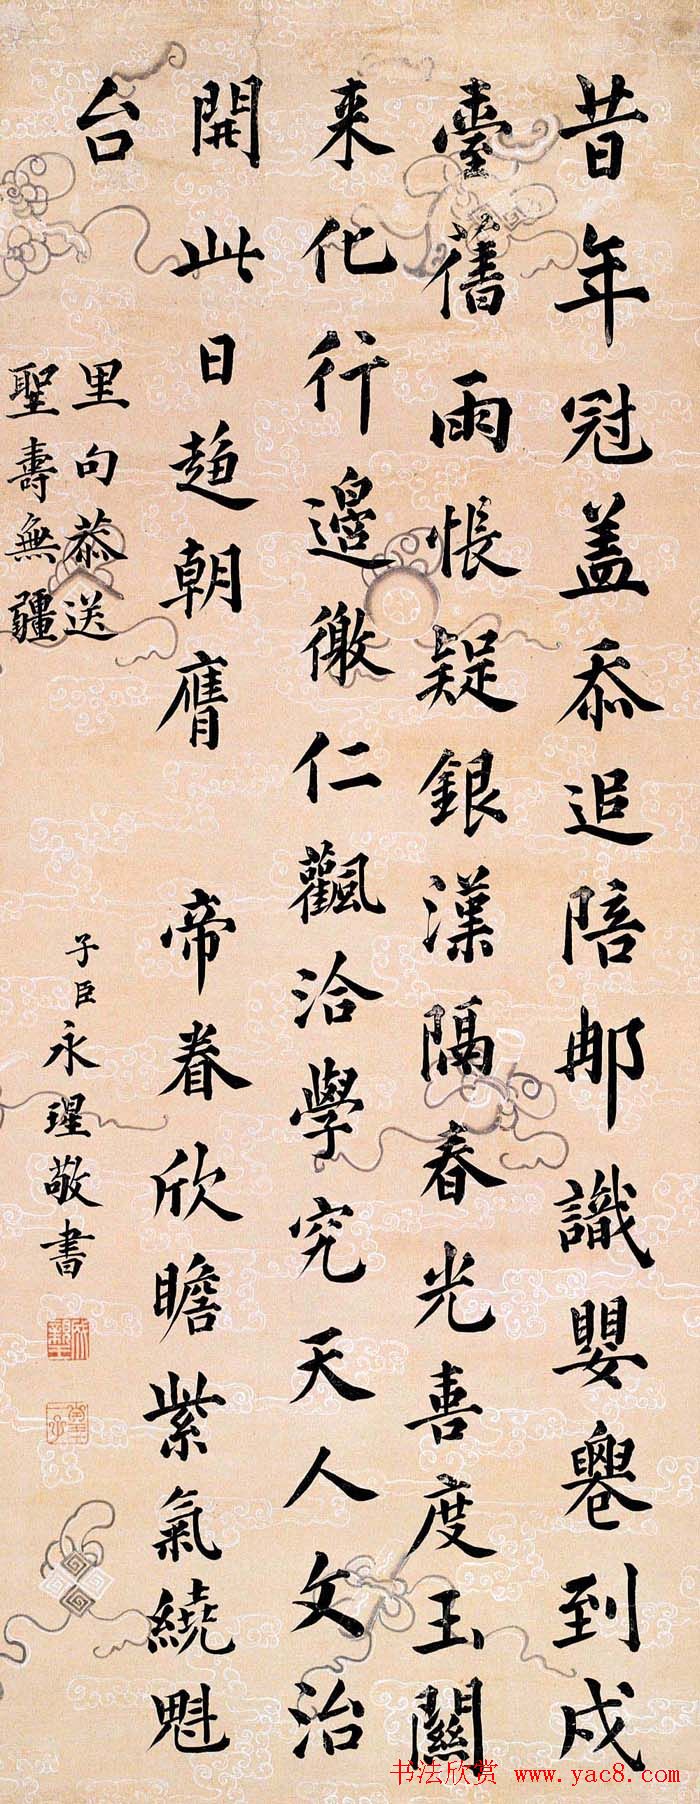 昔年冠盖忝追陪那識嬰到戍
臺舊雨悵疑銀漢隔春光喜度玉關
来化行邉徼仁飌洽學究天人文治
開此日趍朝膺 帝眷欣瞻紫氣繞魁
台
里句恭送
聖壽無疆
子臣永瑆敬書
书法欣赏 www.yac8.com